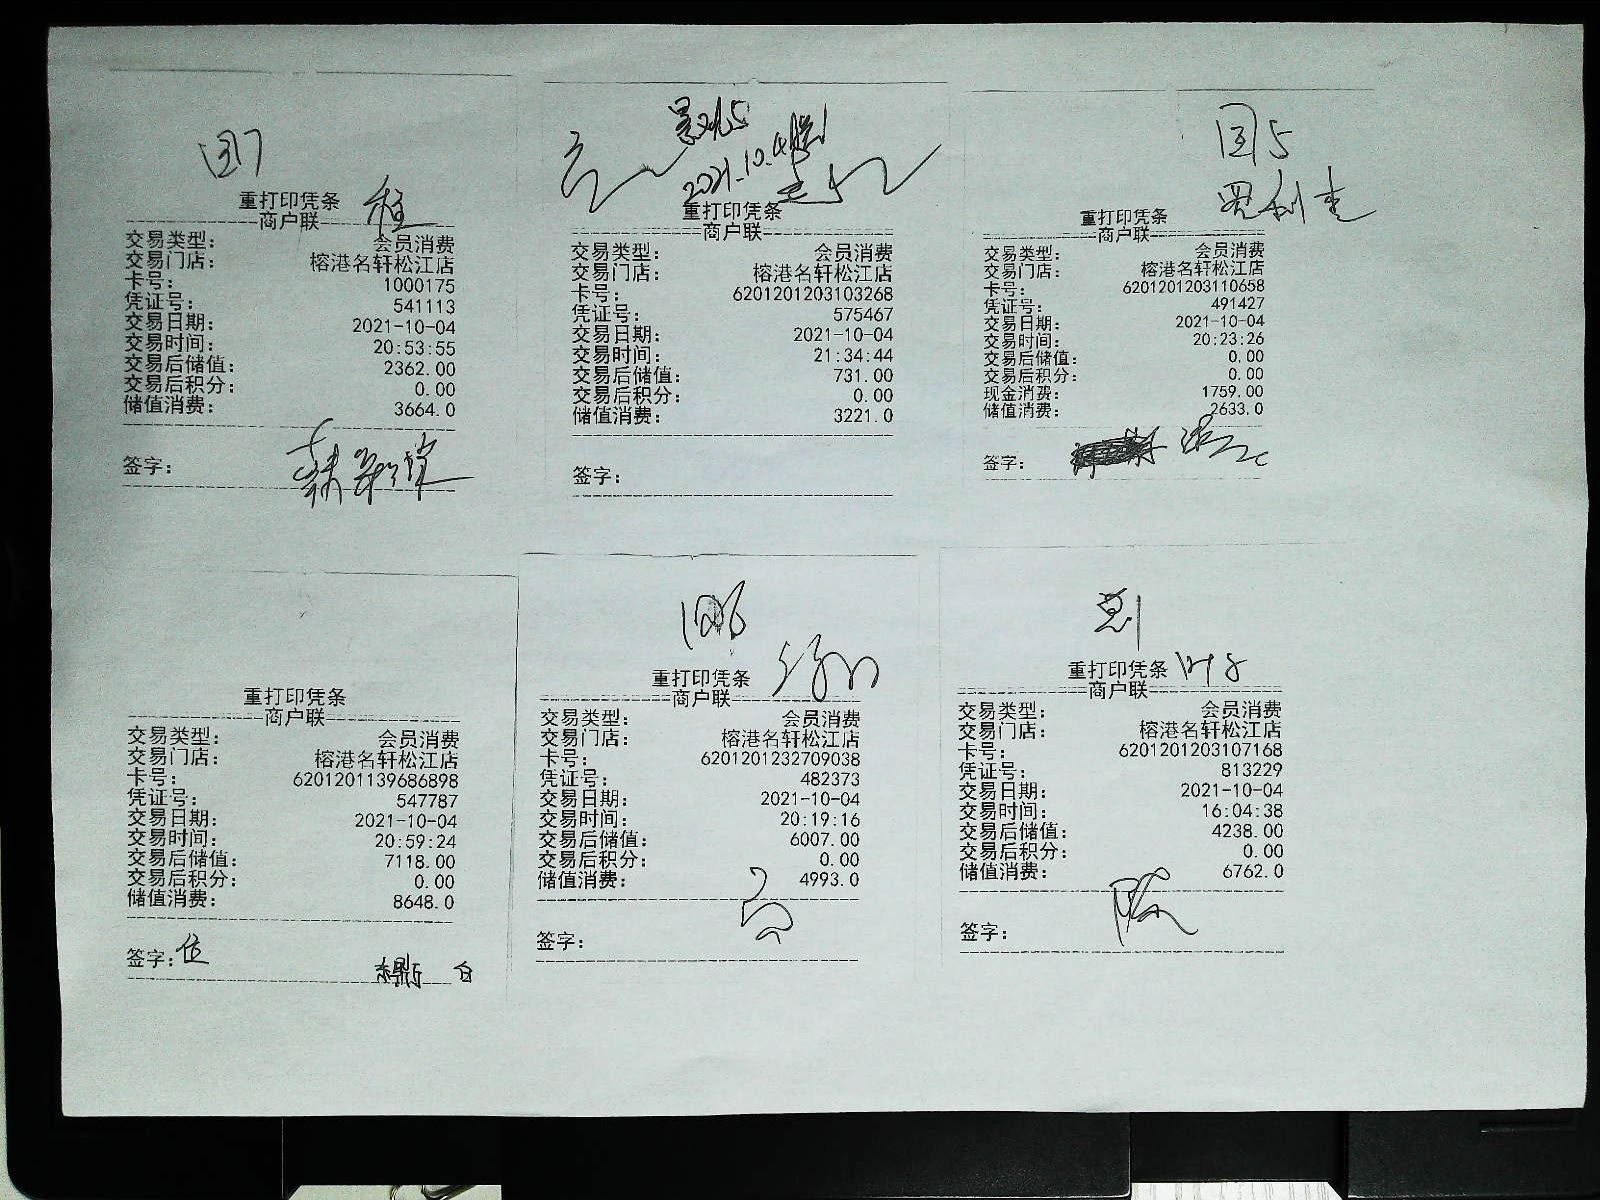 重打印凭条
商户联
交易类型: 会员消费
交易门店: 榕港名轩松江店
卡号: 1000175
凭证号: 541113
交易日期: 2021-10-04
交易时间: 20:53:55
交易后储值: 2362.00
交易后积分: 0.00
储值消费: 3664.0
签字:
2021.10.4
重打印凭条
商户联
交易类型: 会员消费
交易门店: 榕港名轩松江店
卡号: 6201201203103268
凭证号: 575467
交易日期: 2021-10-04
交易时间: 21:34:44
交易后储值: 731.00
交易后积分: 0.00
储值消费: 3221.0
签字:
重打印凭条
商户联
交易类型: 会员消费
交易门店: 榕港名轩松江店
卡号: 6201201203110658
凭证号: 491427
交易日期: 2021-10-04
交易时间: 20:23:26
交易后储值: 0.00
交易后积分: 0.00
现金消费: 1759.00
储值消费: 2633.0
签字:
重打印凭条
商户联
交易类型: 会员消费
交易门店: 榕港名轩松江店
卡号: 6201201139686898
凭证号: 547787
交易日期: 2021-10-04
交易时间: 20:59:24
交易后储值: 7118.00
交易后积分: 0.00
储值消费: 8648.0
签字:
重打印凭条
商户联
交易类型: 会员消费
交易门店: 榕港名轩松江店
卡号: 6201201232709038
凭证号: 482373
交易日期: 2021-10-04
交易时间: 20:19:16
交易后储值: 6007.00
交易后积分: 0.00
储值消费: 4993.0
签字:
重打印凭条
商户联
交易类型: 会员消费
交易门店: 榕港名轩松江店
卡号: 6201201203107168
凭证号: 813229
交易日期: 2021-10-04
交易时间: 16:04:38
交易后储值: 4238.00
交易后积分: 0.00
储值消费: 6762.0
签字: